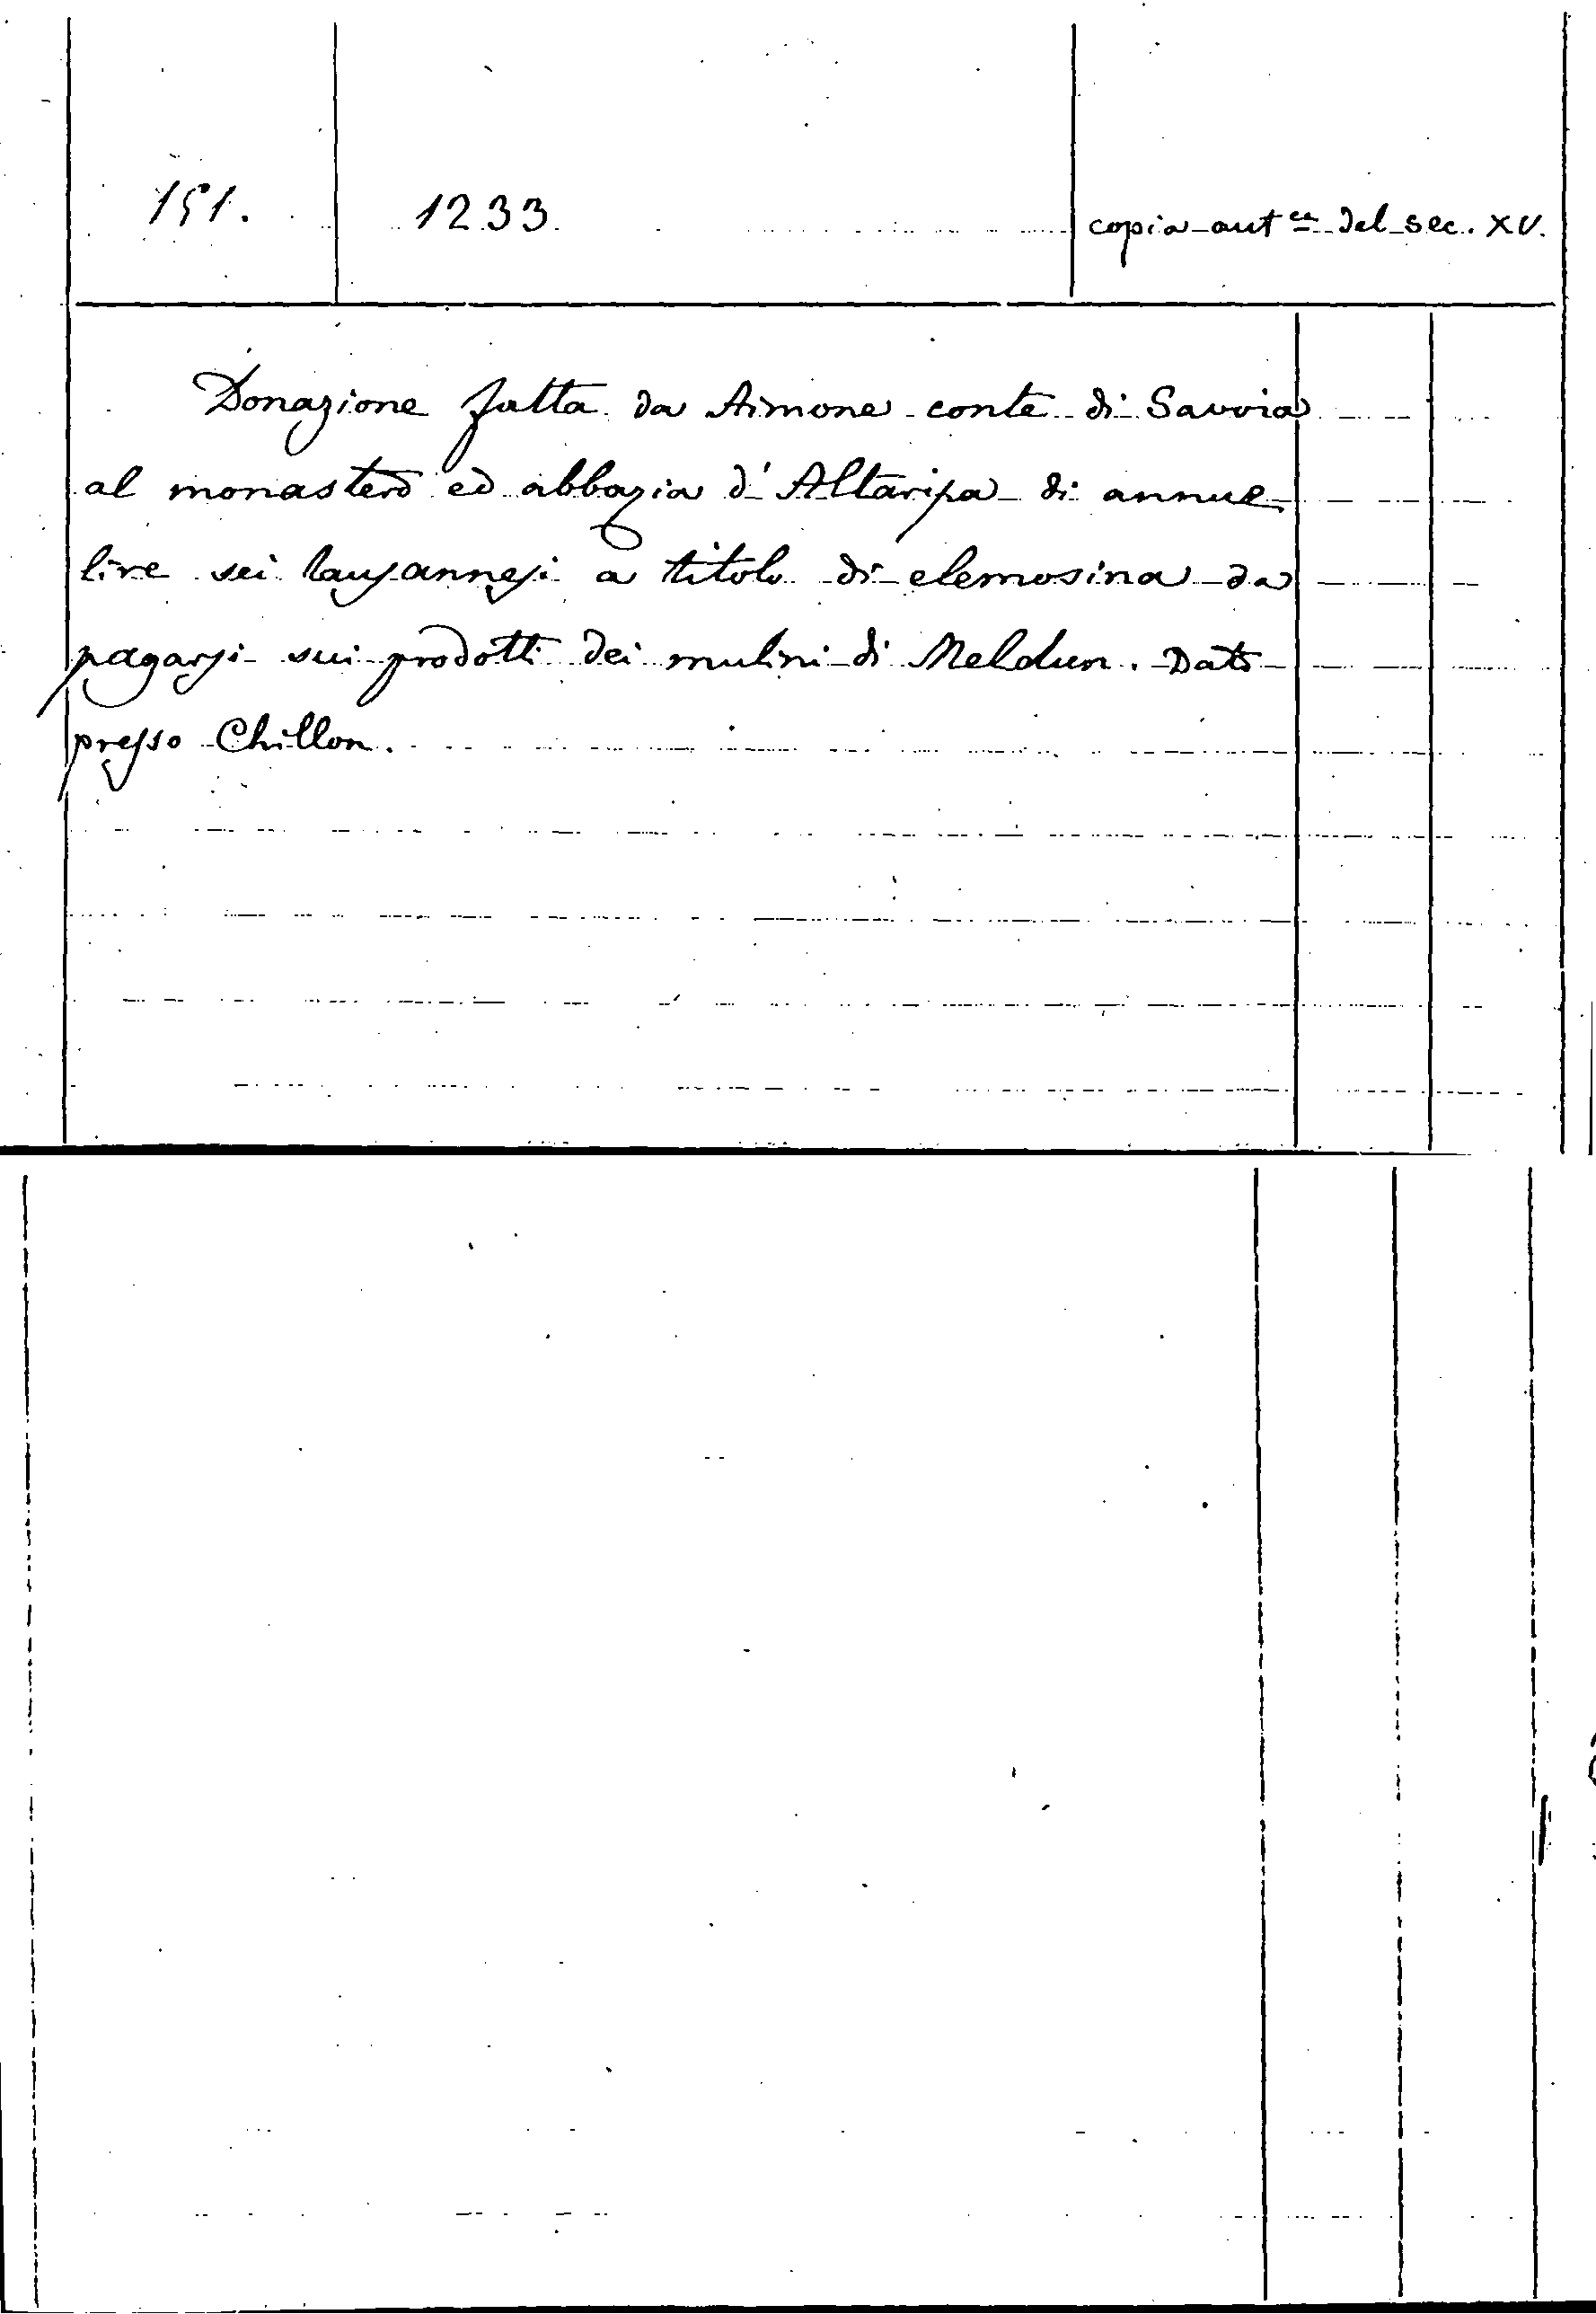 151. 1233 copia autca del sec. XV.
Donazione fatta da Aimone conte di Savoia
al monastero ed abbazia d'Altaripa di annue
lire sei lausannesi a titolo di elemosina da
pagarsi sui prodotti dei mulini di Meldun. Dato
presso Chillon.